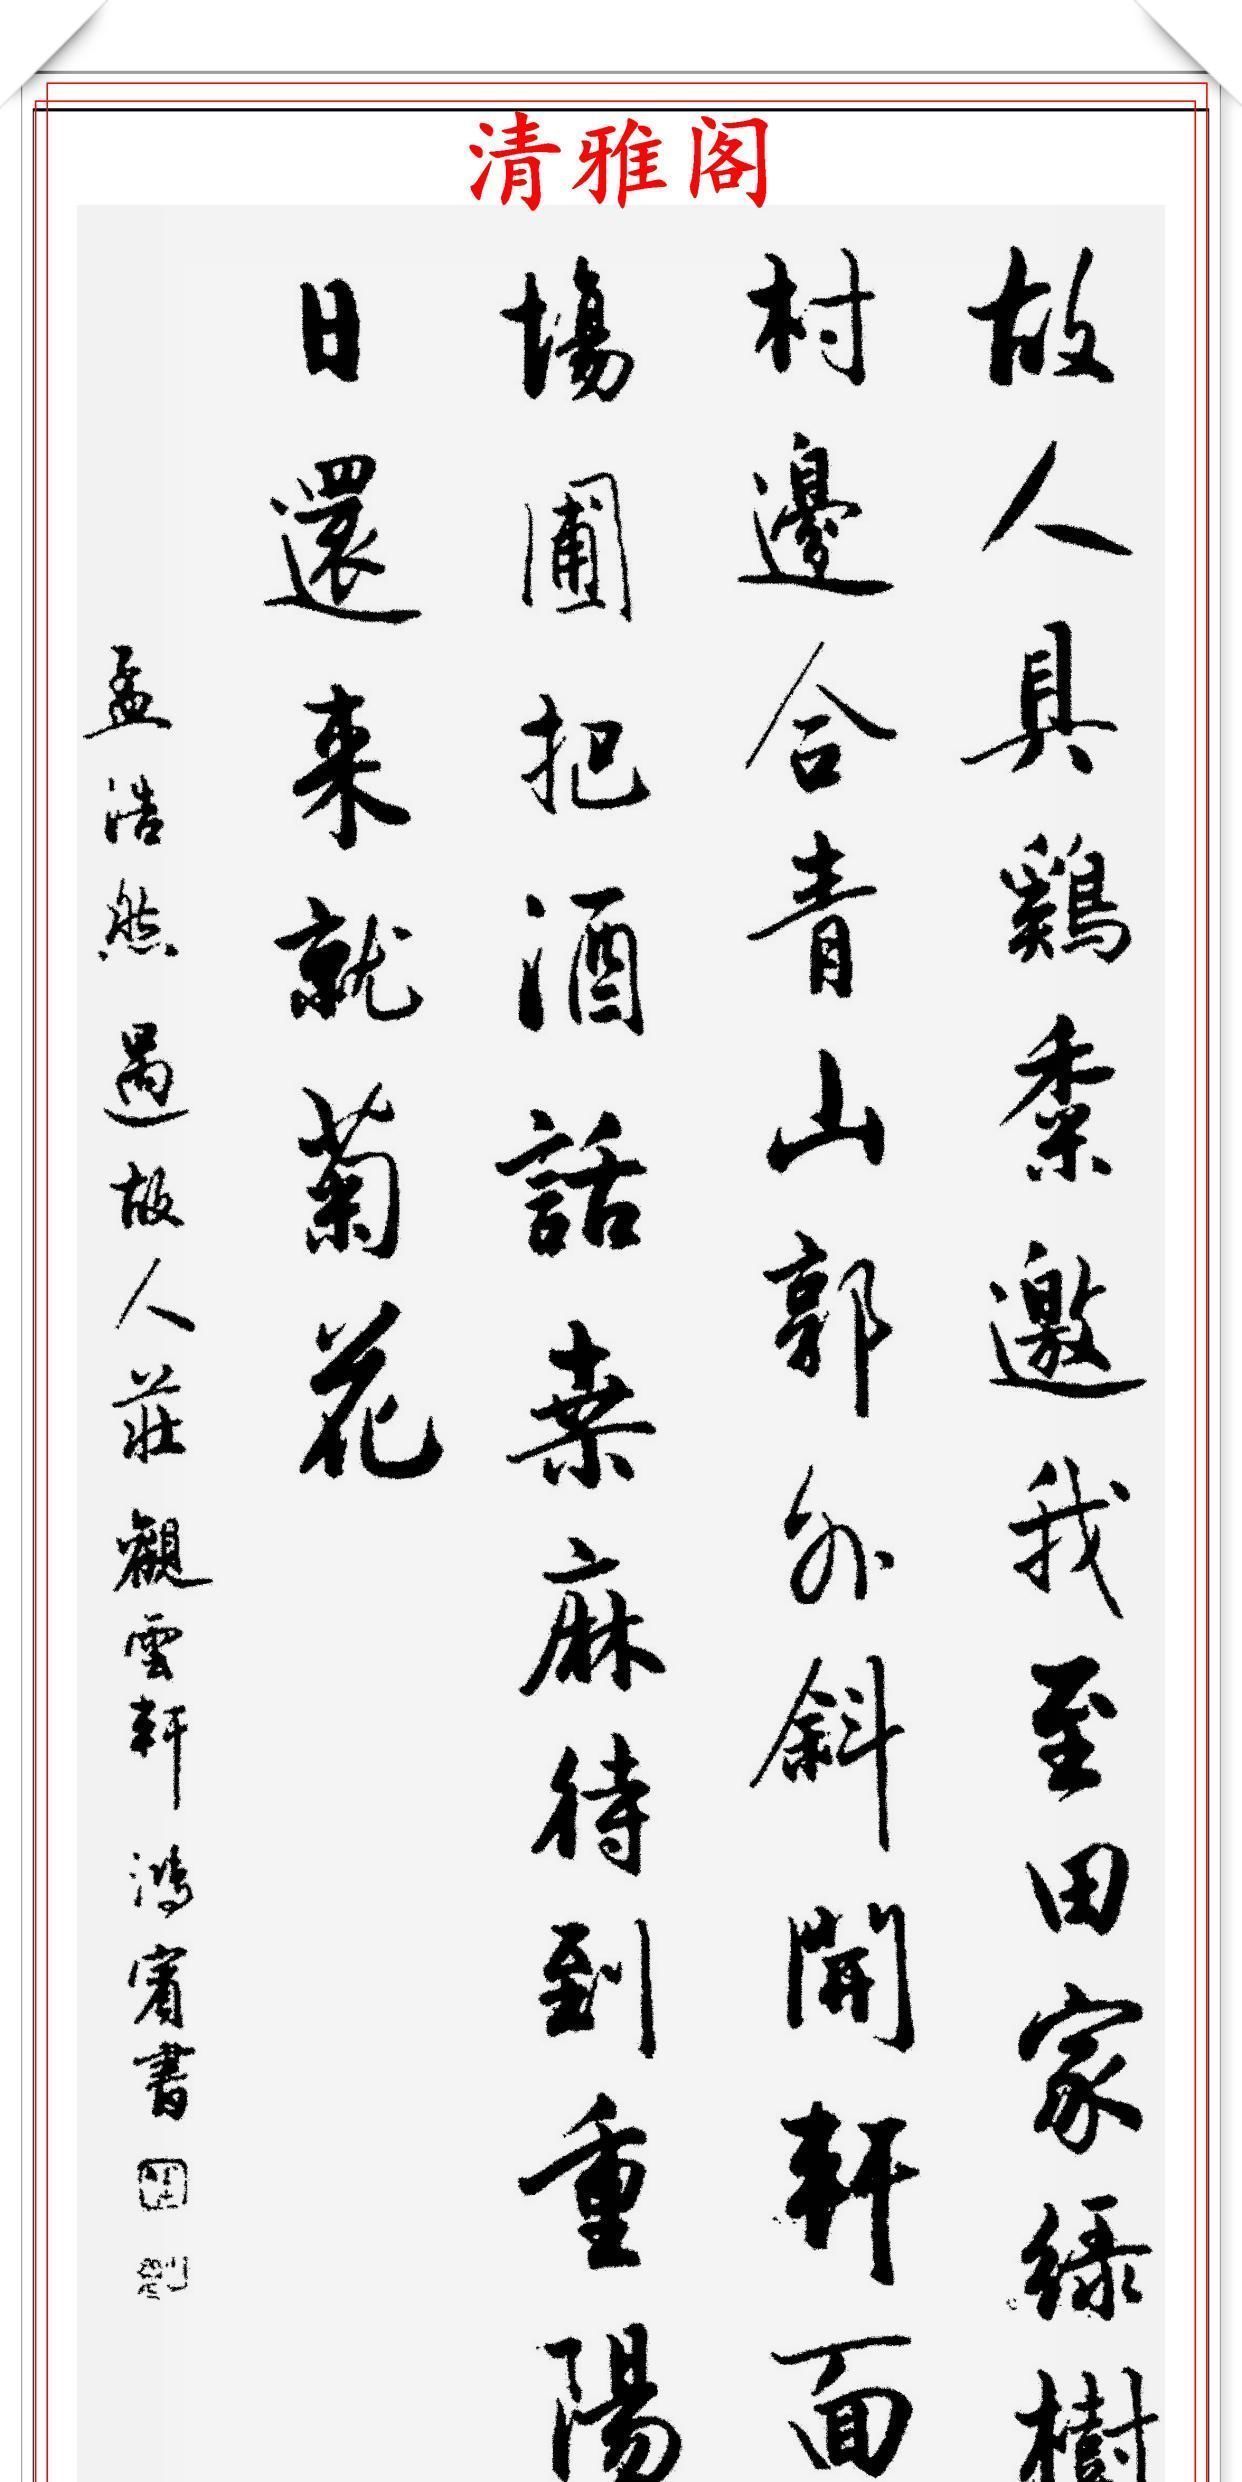 清雅阁
故人具鷄黍邀我至田家綠樹
村邊合青山郭外斜開軒面
塲圃把酒話桒麻待到重陽
日還来就菊花
孟浩然過故人莊觀雲軒鴻賓書